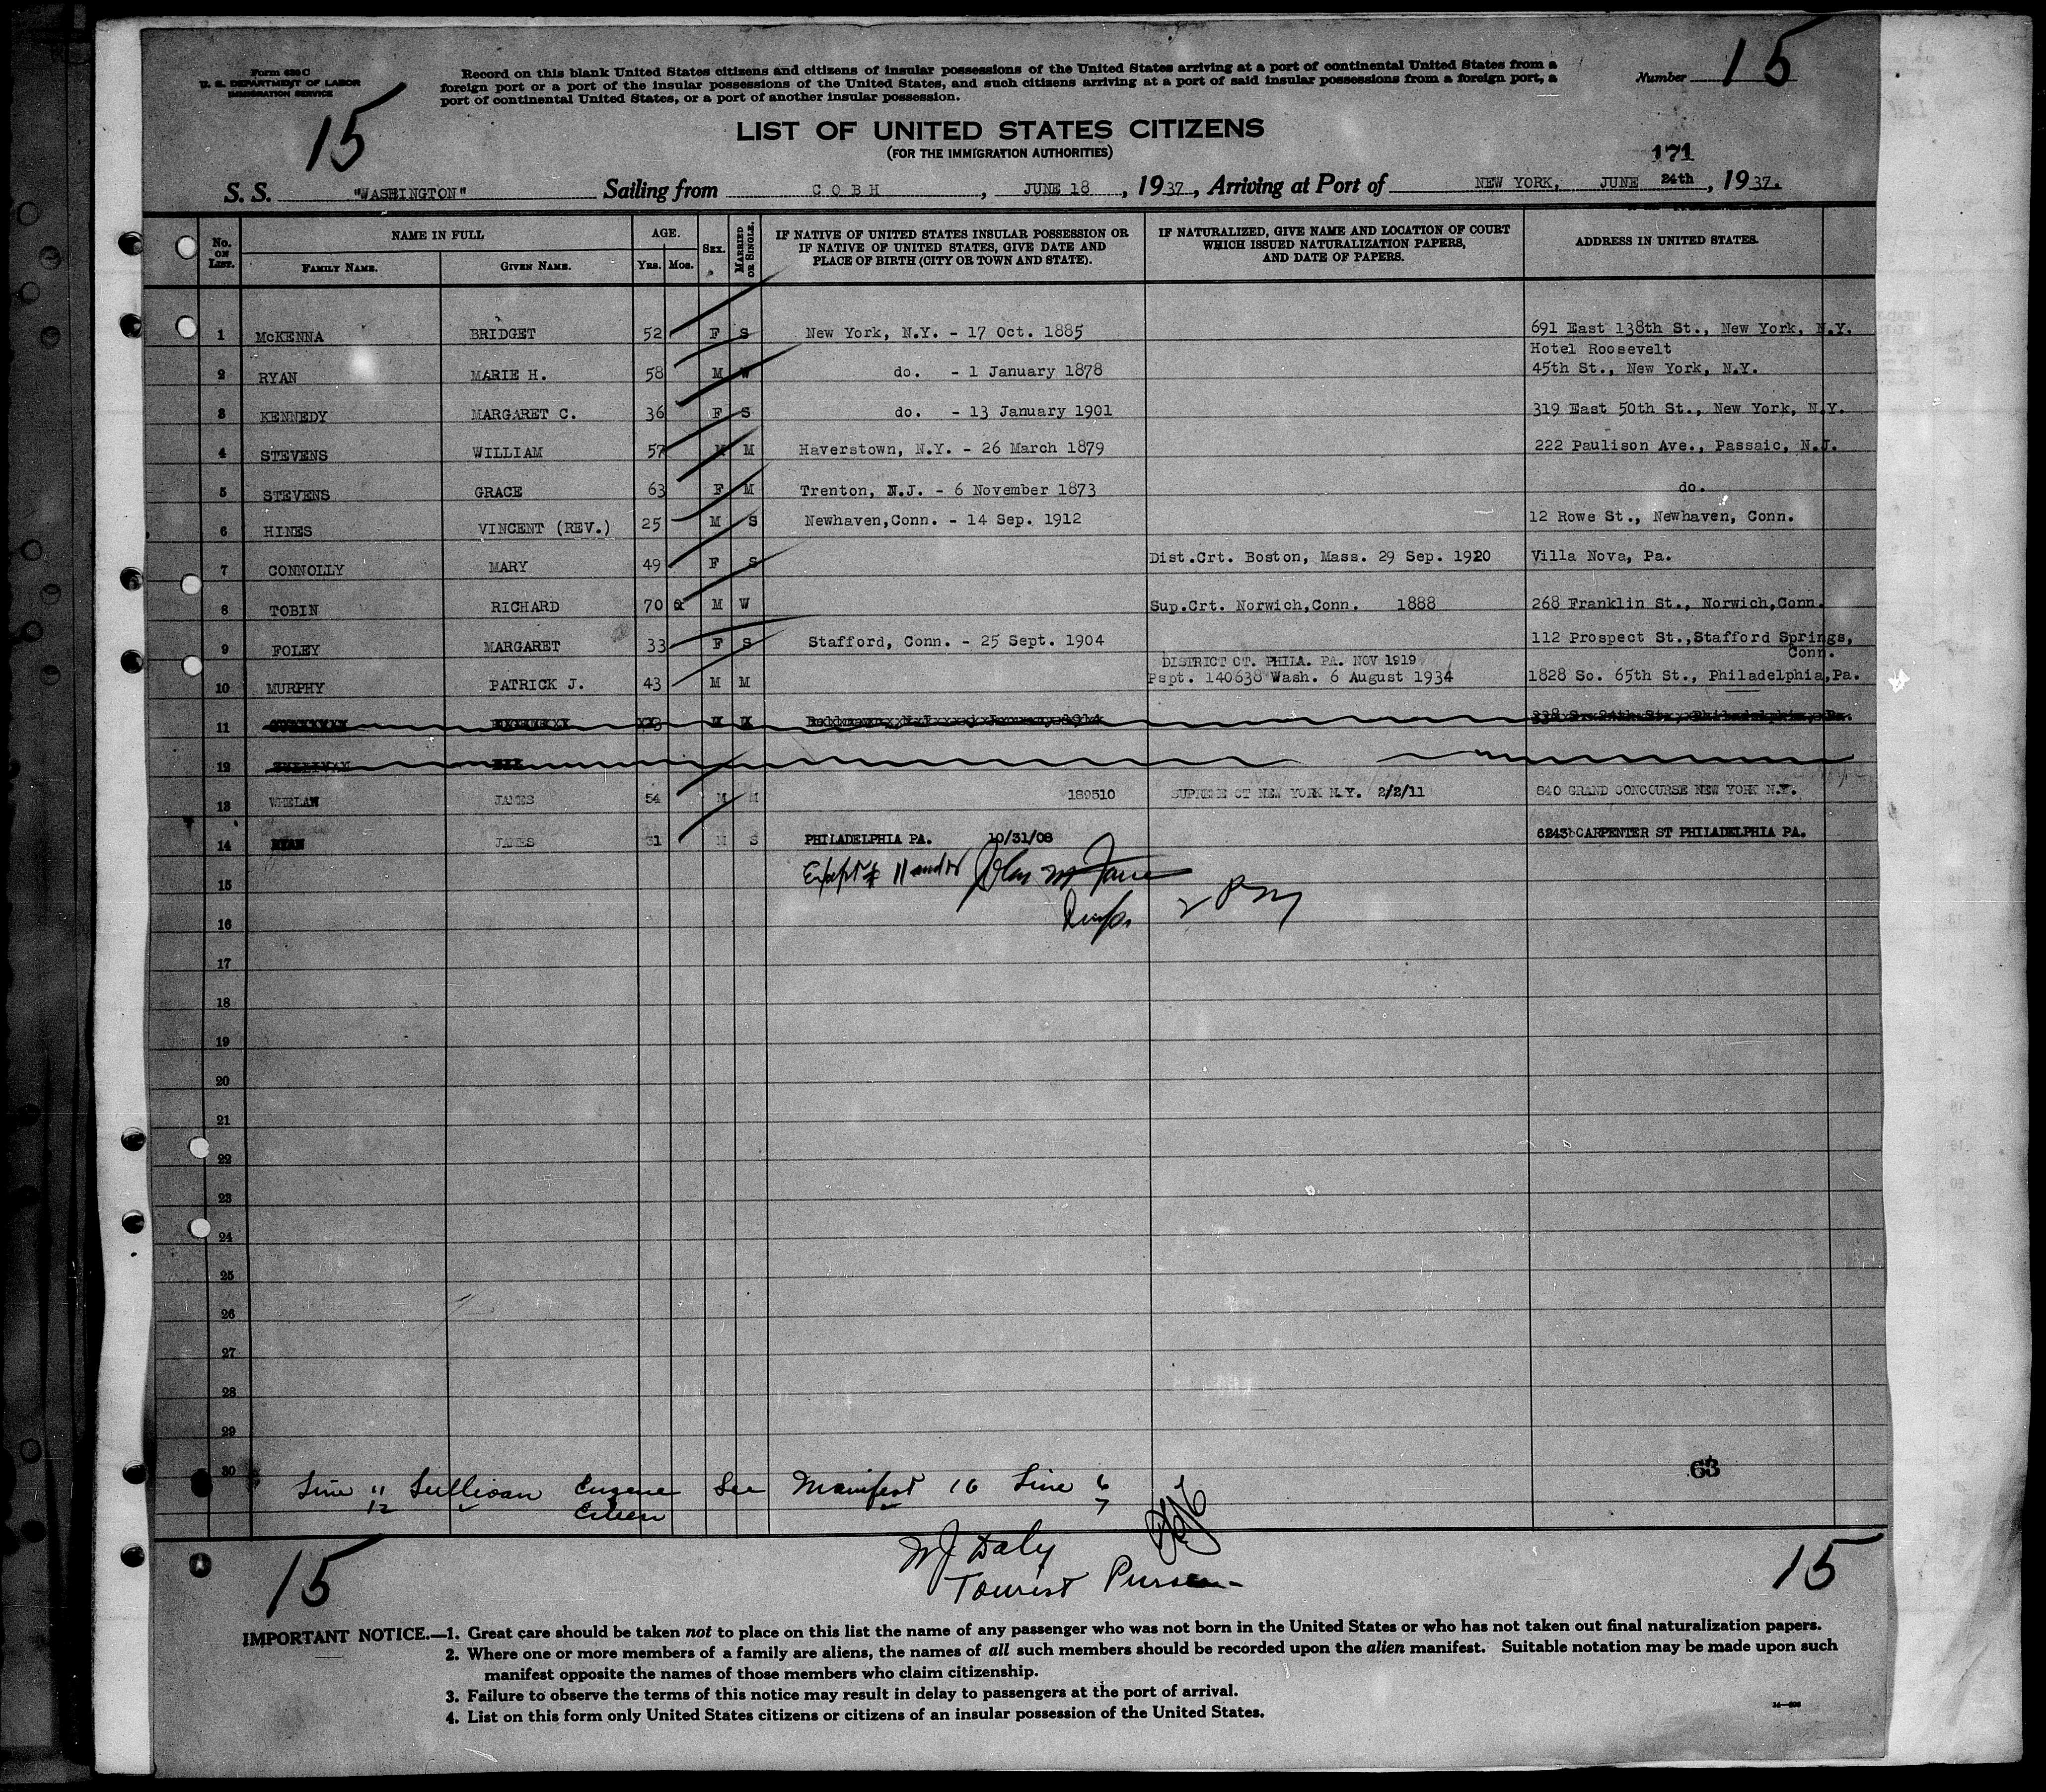 Form 630 C
U. S. DEPARTMENT OF LABOR
IMMIGRATION SERVICE
Record on this blank United States citizens and citizens of insular possessions of the United States arriving at a port of continental United States from a
foreign port or a port of the insular possessions of the United States, and such citizens arriving at a port of said insular possessions from a foreign port, a
port of continental United States, or a port of another insular possession.
Number 15
15
LIST OF UNITED STATES CITIZENS
(FOR THE IMMIGRATION AUTHORITIES)
171
S. S. "WASHINGTON" Sailing from COBH, JUNE 18, 1937, Arriving at Port of NEW YORK, JUNE 24th, 1937.
No. ON LIST. NAME IN FULL FAMILY NAME. GIVEN NAME. AGE. Yrs. Mos. SEX. MARRIED OR SINGLE. IF NATIVE OF UNITED STATES INSULAR POSSESSION OR IF NATIVE OF UNITED STATES, GIVE DATE AND PLACE OF BIRTH (CITY OR TOWN AND STATE). IF NATURALIZED, GIVE NAME AND LOCATION OF COURT WHICH ISSUED NATURALIZATION PAPERS, AND DATE OF PAPERS. ADDRESS IN UNITED STATES.
1 McKENNA BRIDGET 52 F S New York, N.Y. - 17 Oct. 1885 691 East 138th St., New York, N.Y.
Hotel Roosevelt
2 RYAN MARIE H. 58 M W do. - 1 January 1878 45th St., New York, N.Y.
3 KENNEDY MARGARET C. 36 F S do. - 13 January 1901 319 East 50th St., New York, N.Y.
4 STEVENS WILLIAM 57 M M Haverstown, N.Y. - 26 March 1879 222 Paulison Ave., Passaic, N.J.
5 STEVENS GRACE 63 F M Trenton, N.J. - 6 November 1873 do.
6 HINES VINCENT (REV.) 25 M S Newhaven,Conn. - 14 Sep. 1912 12 Rowe St., Newhaven, Conn.
7 CONNOLLY MARY 49 F S Dist.Crt. Boston, Mass. 29 Sep. 1920 Villa Nova, Pa.
8 TOBIN RICHARD 70 M W Sup.Crt. Norwich,Conn. 1888 268 Franklin St., Norwich,Conn.
9 FOLEY MARGARET 33 F S Stafford, Conn. - 25 Sept. 1904 112 Prospect St.,Stafford Springs,
Conn.
DISTRICT CT. PHILA. PA. NOV 1919
10 MURPHY PATRICK J. 43 M M Pspt. 140638 Wash. 6 August 1934 1828 So. 65th St., Philadelphia,Pa.
11
12 SULLIVAN
13 WHELAN JAMES 54 M M 189510 SUPREME CT NEW YORK N.Y. 2/2/11 840 GRAND CONCOURSE NEW YORK N.Y.
14 RYAN JAMES 31 M S PHILADELPHIA PA. 10/31/08 6243 CARPENTER ST PHILADELPHIA PA.
15 Except # 11 and 12
16
17
18
19
20
21
22
23
24
25
26
27
28
29
30
63
Line 11 Sullivan Eugene See Manifest 16 Line 6
12 Eileen 7
15
M J Daly
15
Tourist Purser
IMPORTANT NOTICE.—1. Great care should be taken not to place on this list the name of any passenger who was not born in the United States or who has not taken out final naturalization papers.
2. Where one or more members of a family are aliens, the names of all such members should be recorded upon the alien manifest. Suitable notation may be made upon such
manifest opposite the names of those members who claim citizenship.
3. Failure to observe the terms of this notice may result in delay to passengers at the port of arrival.
4. List on this form only United States citizens or citizens of an insular possession of the United States.